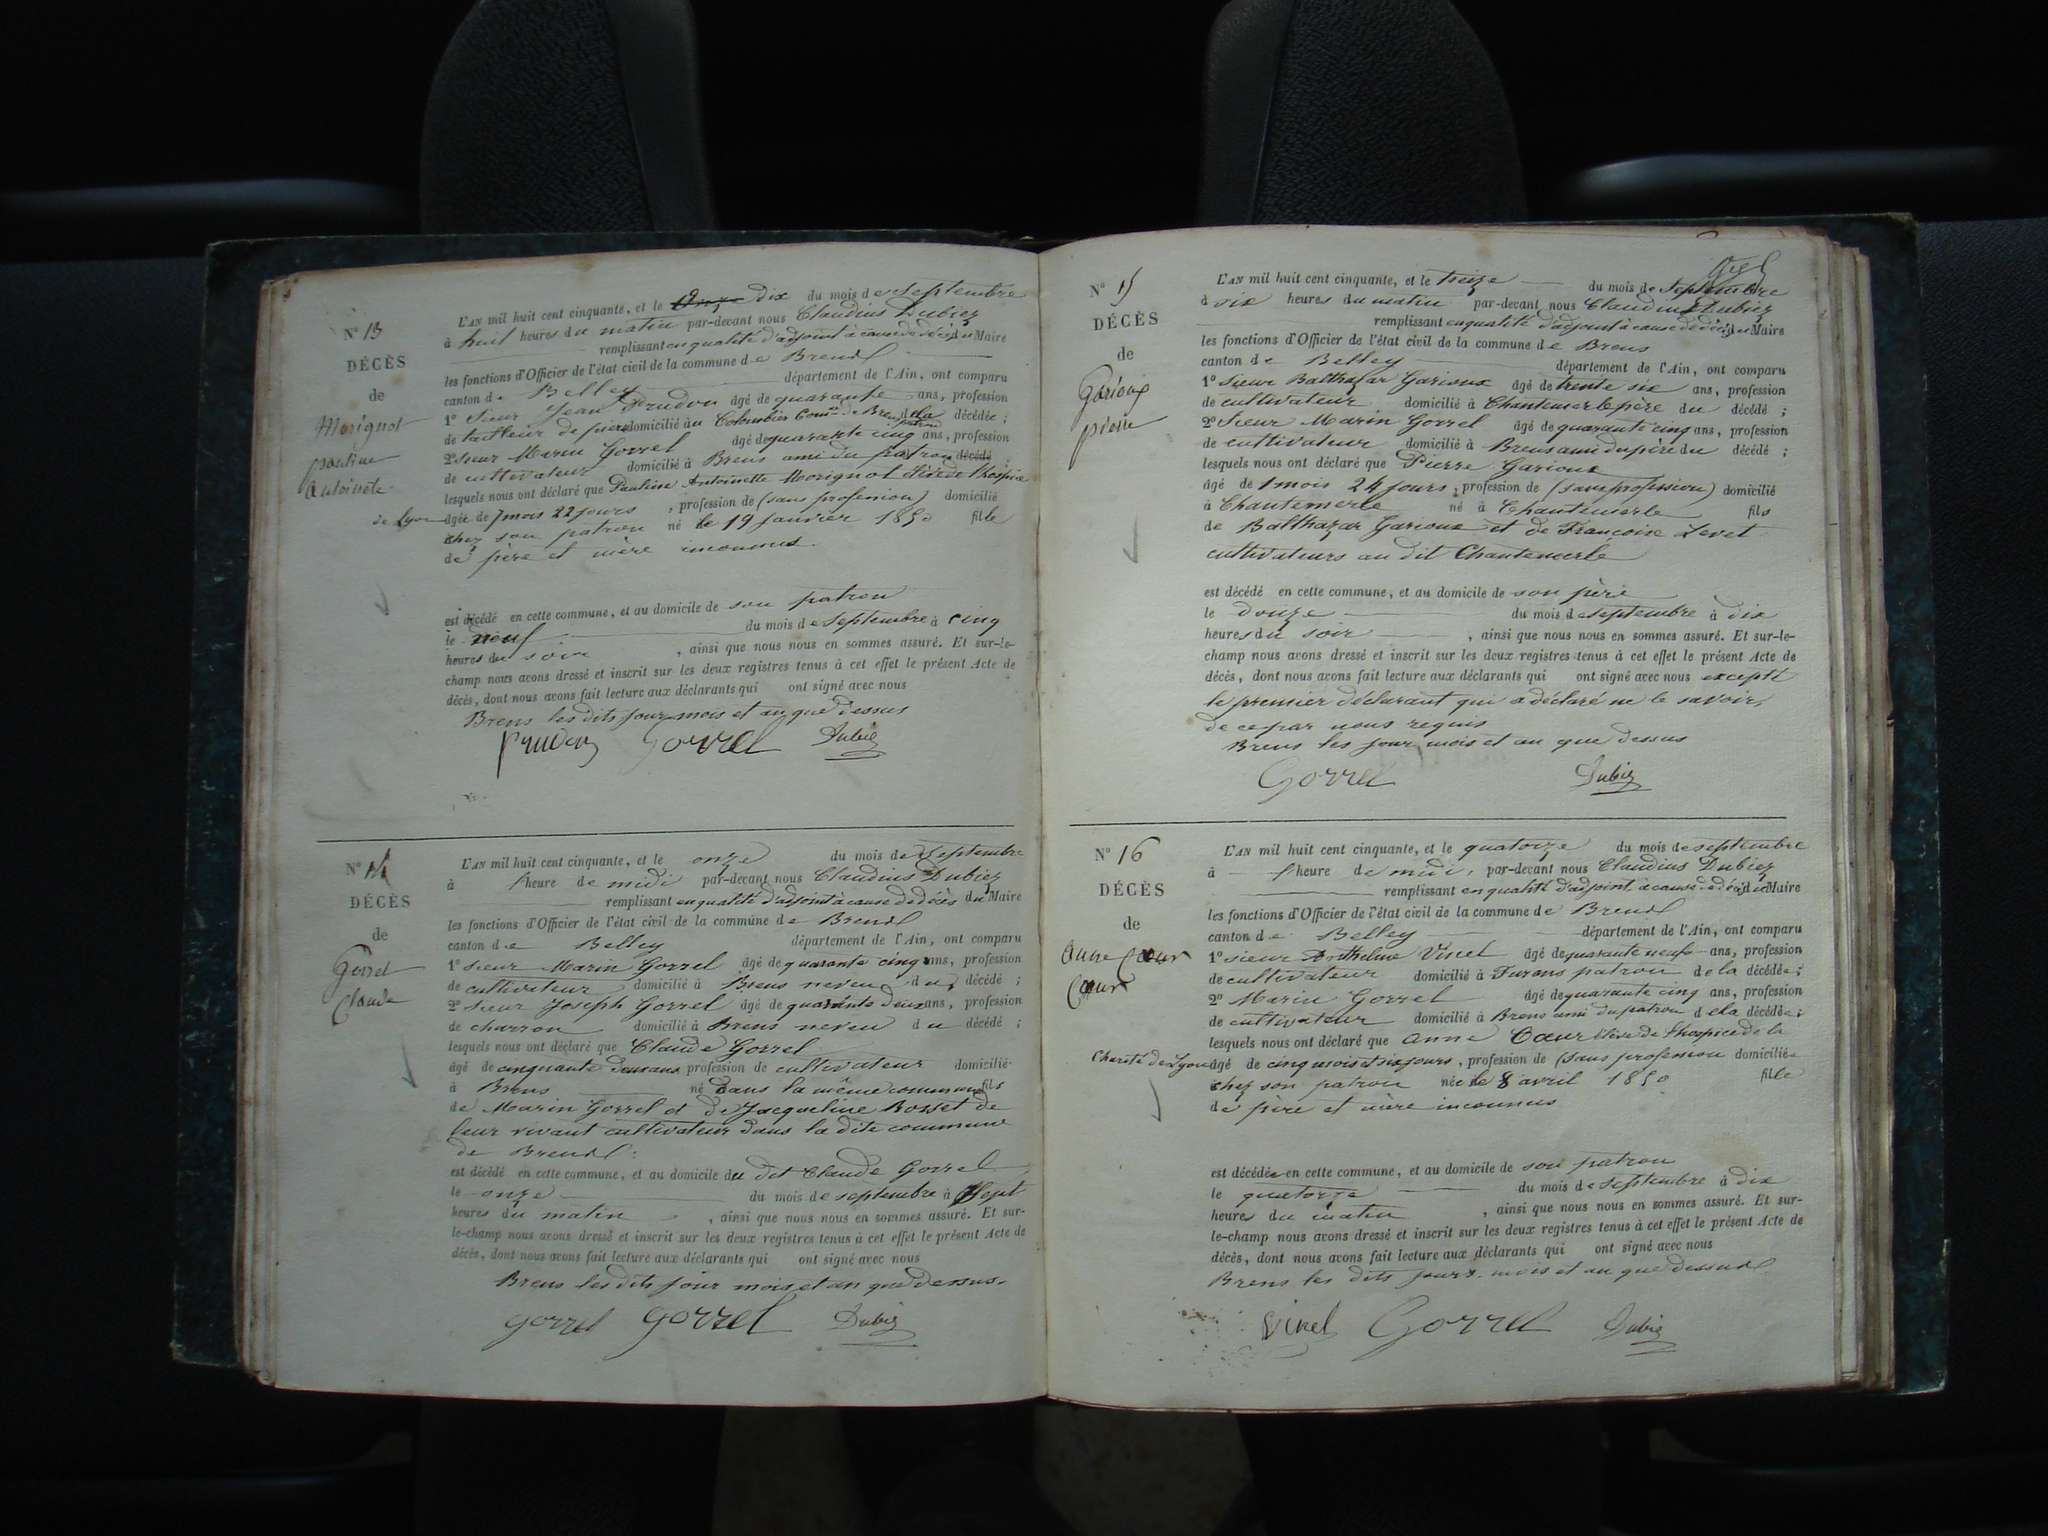 N° 13
DÉCÈS
de
Morignot
pauline
antoinete
L'AN mil huit cent cinquante, et le dix du mois de Septembre
à huit heures du matin par-devant nous Claudius Dubiez
remplissant en qualité d'adjoint à cause de décès du Maire
les fonctions d'Officier de l'état civil de la commune de Brens
canton de Belley département de l'Ain, ont comparu
1° Sieur Jean Prudon âgé de quarante ans, profession
de tailleur de pierre domicilié au Colombier Comne de Brens patron de la décédée ;
2° Sieur Marin Gorrel âgé de quarante cinq ans, profession
de cultivateur domicilié à Brens ami du patron décédé ;
lesquels nous ont déclaré que Pauline Antoinette Morignot élève de l'hospice
de Lyon âgée de 7 mois 22 jours , profession de (sans profession) domicilié
chez son patron né le 19 janvier 1850 fille
de père et mère inconnus.
est décédé en cette commune, et au domicile de son patron
le neuf du mois de Septembre à cinq
heures du soir , ainsi que nous nous en sommes assuré. Et sur-le-
champ nous avons dressé et inscrit sur les deux registres tenus à cet effet le présent Acte de
décès, dont nous avons fait lecture aux déclarants qui ont signé avec nous
Brens les dits jour mois et an que dessus
Prudon Gorrel Dubiez
N° 14
DÉCÈS
de
Gorrel
Claude
L'AN mil huit cent cinquante, et le onze du mois de Septembre
à 1 heure de midi par-devant nous Claudius Dubiez
remplissant en qualité d'adjoint à cause de décès du Maire
les fonctions d'Officier de l'état civil de la commune de Brens
canton de Belley département de l'Ain, ont comparu
1° sieur Marin Gorrel âgé de quarante cinq ans, profession
de cultivateur domicilié à Brens neveu du décédé ;
2° Sieur Joseph Gorrel âgé de quarante deux ans, profession
de charron domicilié à Brens neveu du décédé ;
lesquels nous ont déclaré que Claude Gorrel
âgé de cinquante deux ans profession de cultivateur domicilié
à Brens né dans la même commune fils
de Marin Gorrel et de Jacqueline Bosset de
leur vivant cultivateur dans la dite commune
de Brens :
est décédé en cette commune, et au domicile du dit Claude Gorrel
le onze du mois de septembre à Sept
heures du matin , ainsi que nous nous en sommes assuré. Et sur-
le-champ nous avons dressé et inscrit sur les deux registres tenus à cet effet le présent Acte de
décès, dont nous avons fait lecture aux déclarants qui ont signé avec nous
Brens les dits jour mois et an que dessus.
gorrel Gorrel Dubiez
N° 15
DÉCÈS
de
Garioux
pierre
L'AN mil huit cent cinquante, et le treize du mois de Septembre
à six heures du matin par-devant nous Claudius Dubiez
remplissant en qualité d'adjoint à cause de décès du Maire
les fonctions d'Officier de l'état civil de la commune de Brens
canton de Belley département de l'Ain, ont comparu
1° Sieur Balthazar Garioux âgé de trente six ans, profession
de cultivateur domicilié à Chantemerle père du décédé ;
2° Sieur Marin Gorrel âgé de quarante cinq ans, profession
de cultivateur domicilié à Brens ami du père du décédé ;
lesquels nous ont déclaré que Pierre Garioux
âgé de 1 mois 24 jours, profession de (sans profession) domicilié
à Chantemerle né à Chantemerle fils
de Balthazar Garioux et de Françoise Levet
cultivateurs au dit Chantemerle
est décédé en cette commune, et au domicile de son père
le douze du mois de septembre à dix
heures du soir , ainsi que nous nous en sommes assuré. Et sur-le-
champ nous avons dressé et inscrit sur les deux registres tenus à cet effet le présent Acte de
décès, dont nous avons fait lecture aux déclarants qui ont signé avec nous excepté
le premier déclarant qui a déclaré ne le savoir,
de ce par nous requis
Brens les jour mois et an que dessus
Gorrel Dubiez
N° 16
DÉCÈS
de
anne Cœur
Cœur
L'AN mil huit cent cinquante, et le quatorze du mois de septembre
à 1 heure de midi, par-devant nous Claudius Dubiez
remplissant en qualité d'adjoint à cause de décès du Maire
les fonctions d'Officier de l'état civil de la commune de Brens
canton de Belley département de l'Ain, ont comparu
1° sieur Anthelme Vincel âgé de quarante neuf ans, profession
de cultivateur domicilié à Furans patron de la décédée ;
2° Marin Gorrel âgé de quarante cinq ans, profession
de cultivateur domicilié à Brens ami du patron de la décédée ;
lesquels nous ont déclaré que anne Cœur élève de l'hospice de la
Charité de Lyon âgé de cinq mois et six jours, profession de (sans profession domiciliée
chez son patron née le 8 avril 1850 fille
de père et mère inconnus
est décédée en cette commune, et au domicile de son patron
le quatorze du mois de Septembre à dix
heures du matin , ainsi que nous nous en sommes assuré. Et sur-
le-champ nous avons dressé et inscrit sur les deux registres tenus à cet effet le présent Acte de
décès, dont nous avons fait lecture aux déclarants qui ont signé avec nous
Brens les dits jours mois et an que dessus
Vincel Gorrel Dubiez